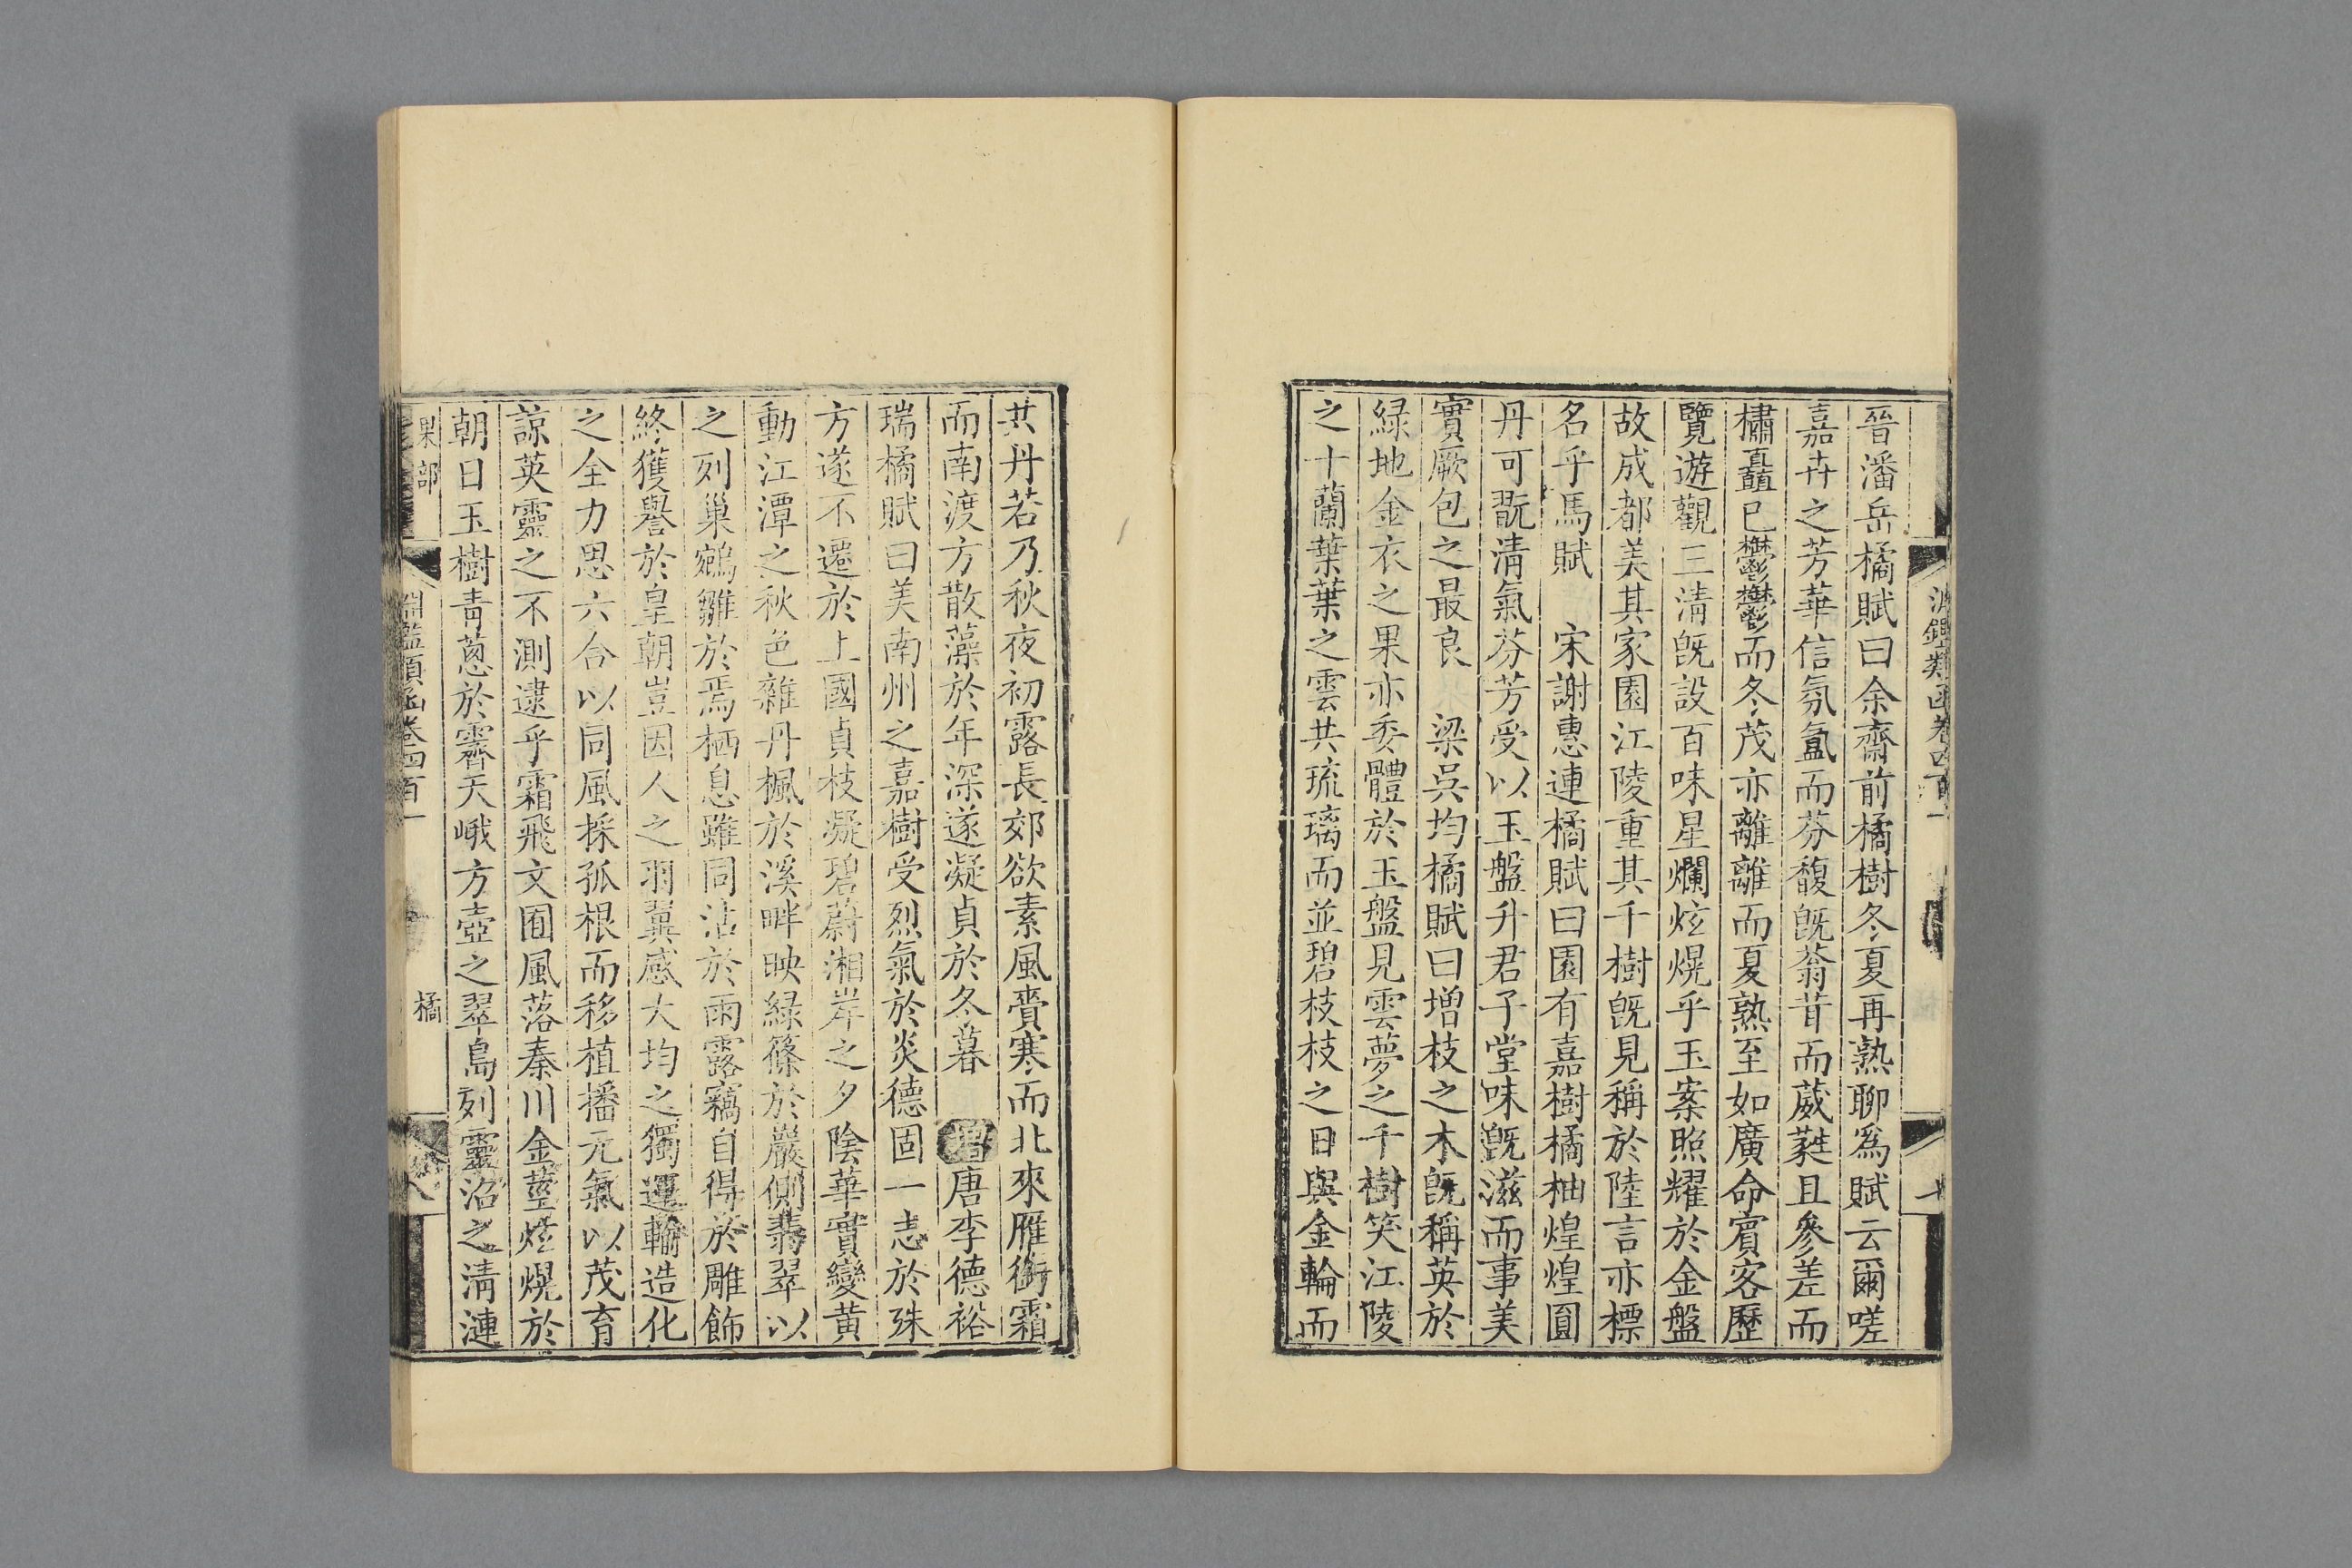 淵鑑類函卷四百一
晉潘岳橘賦曰余齋前橘樹冬夏再熟聊爲賦云爾嗟
嘉卉之芳華信氛氳而芬馥旣蓊昔而葳蕤且參差而
櫹矗已鬱鬱而冬茂亦離離而夏熟至如廣命賓客歷
覽遊觀三淸旣設百味星爛炫熀乎玉案照耀於金盤
故成都美其家園江陵重其千樹旣見稱於陸言亦標
名乎馬賦 宋謝惠連橘賦曰園有嘉樹橘柚煌煌圓
丹可翫淸氣芬芳受以玉盤升君子堂味旣滋而事美
實厥包之最良 梁吳均橘賦曰增枝之木旣稱英於
綠地金衣之果亦委體於玉盤見雲夢之千樹笑江陵
之十蘭葉葉之雲共琉璃而並碧枝枝之日與金輪而
共丹若乃秋夜初露長郊欲素風賫寒而北來雁銜霜
而南渡方散藻於年深遂凝貞於冬暮 增唐李德裕
瑞橘賦曰美南州之嘉樹受烈氣於炎德固一志於殊
方遂不遷於上國貞枝凝碧蔚湘岸之夕陰華實變黃
動江潭之秋色雜丹楓於溪畔映綠篠於巖側翡翠以
之列巢鵷雛於焉栖息雖同沾於雨露竊自得於雕飾
終獲譽於皇朝豈因人之羽翼感大均之獨運輪造化
之全力思六合以同風採孤根而移植播元氣以茂育
諒英靈之不測逮乎霜飛文囿風落秦川金莖炫熀於
朝日玉樹靑蔥於霽天峨方壺之翠島列靈沼之淸漣
果部 淵鑑類函卷四百一 橘 八